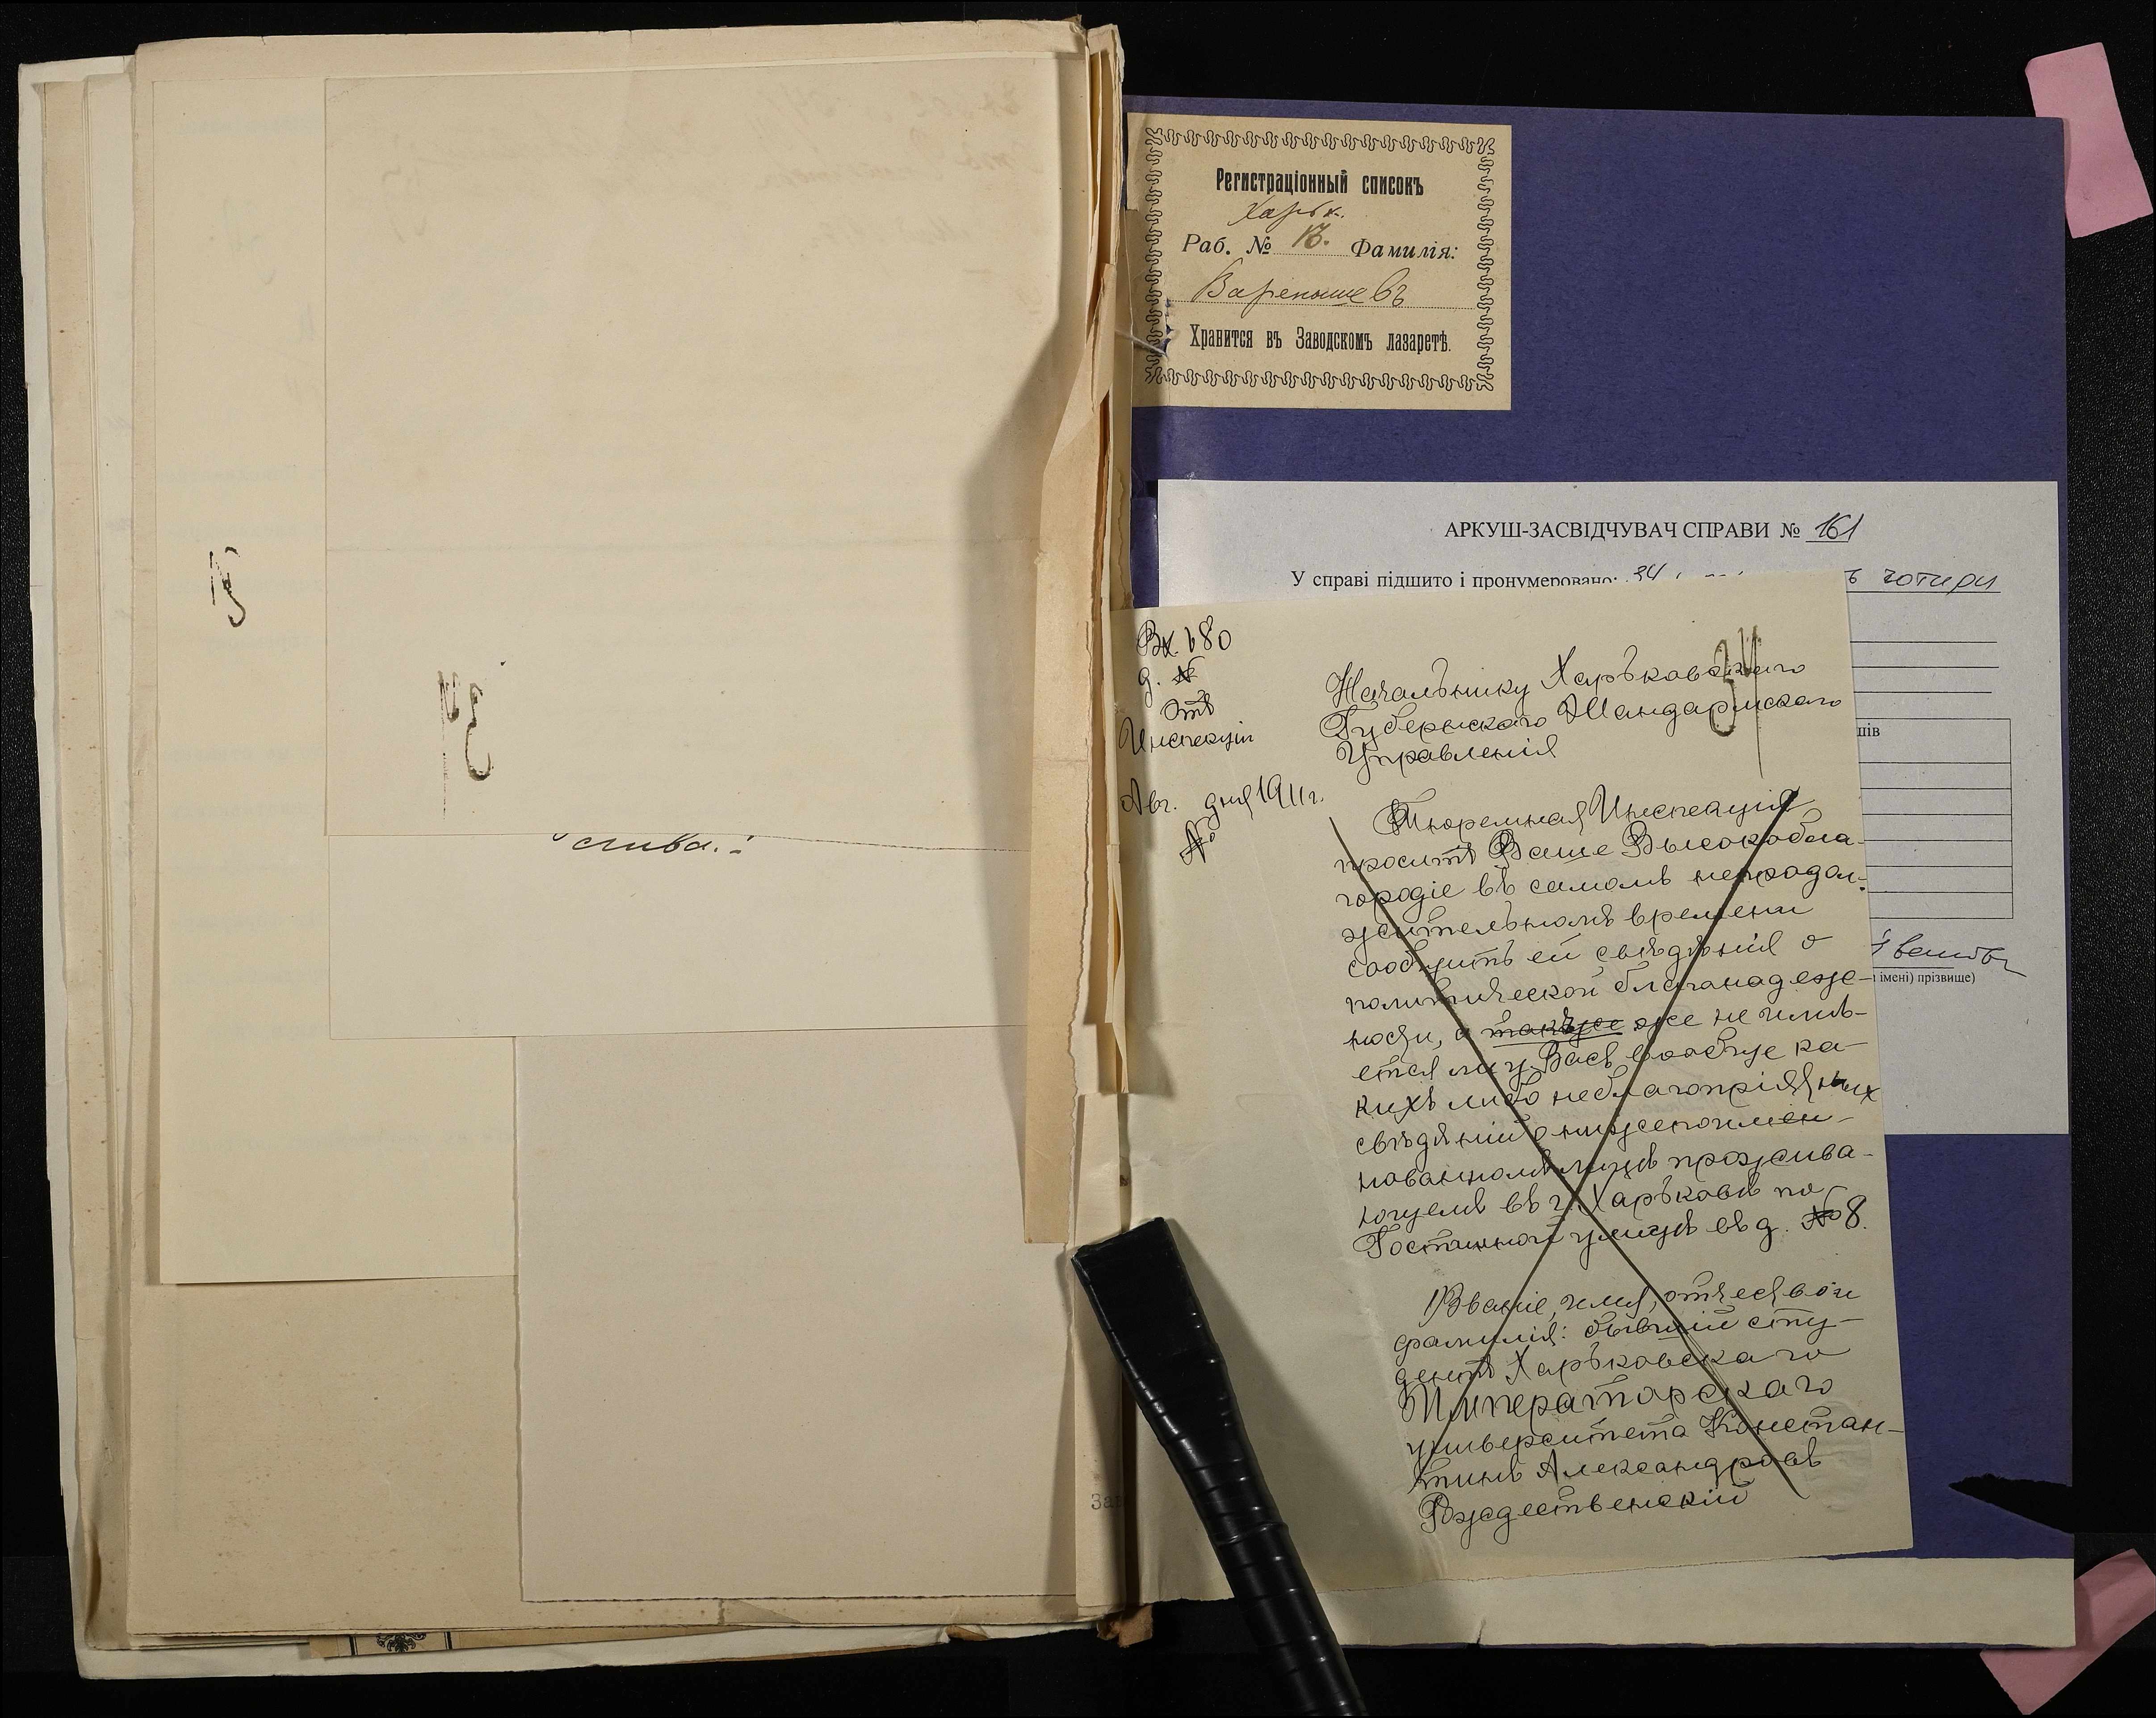 слива.
Регистраціонный списокъ
Харьк.
Раб. № 13. Фамилія:
Хранится въ Заводскомъ лазаретѣ.
АРКУШ-ЗАСВІДЧУВАЧ СПРАВИ № 161
У справі підшито і пронумеровано: 34 чотири
шів
імені) прізвище)
34
Вх. 680
д. №
Отъ
Инспекціи
Авг. дня 1911 г.
№
Начальнику Харьковскаго
Губернскаго Жандармскаго
Управленія
Тюремная Инспекція
проситъ Ваше Высокобла-
городіе въ самомъ непродол-
жительномъ времени
сообщить ей свѣдѣнія о
политической благонадеж-
ности, а также же не имѣ-
ется ли у Васъ вообще ка-
кихъ либо неблагопріятныхъ
свѣдѣній о нижепоимен-
нованномъ лицѣ прожива-
ющемъ въ г. Харьковѣ по
улицѣ въ д. № 8.
1) Званіе, имя, отчество и
фамилія: бывшій сту-
дентъ Харьковскаго
Императорскаго
университета Констан-
тинъ Александровъ
Рождественскій